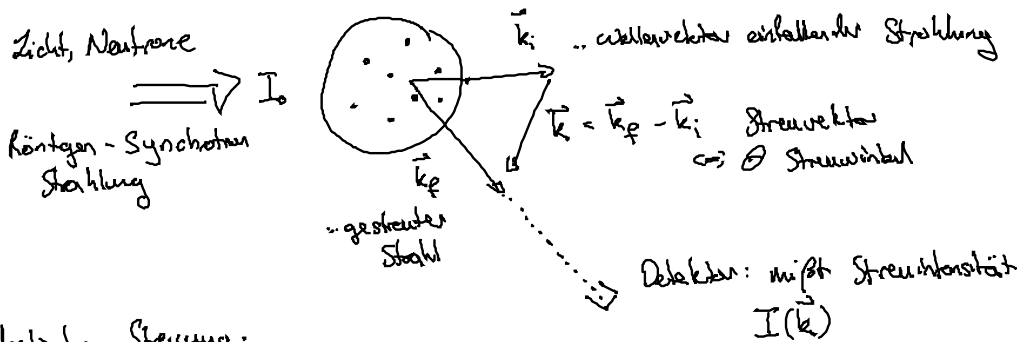 Licht, Neutrone
I₀
Röntgen - Synchrotron
Strahlung
k⃗ᵢ ..wellenvektor einfallender Strahlung
k⃗ = k⃗_f - k⃗ᵢ Streuvektor
<=> θ Streuwinkel
k⃗_f
..gestreuter
Strahl
Detektor: mißt Streuintensität
I(k⃗)
Streuung: